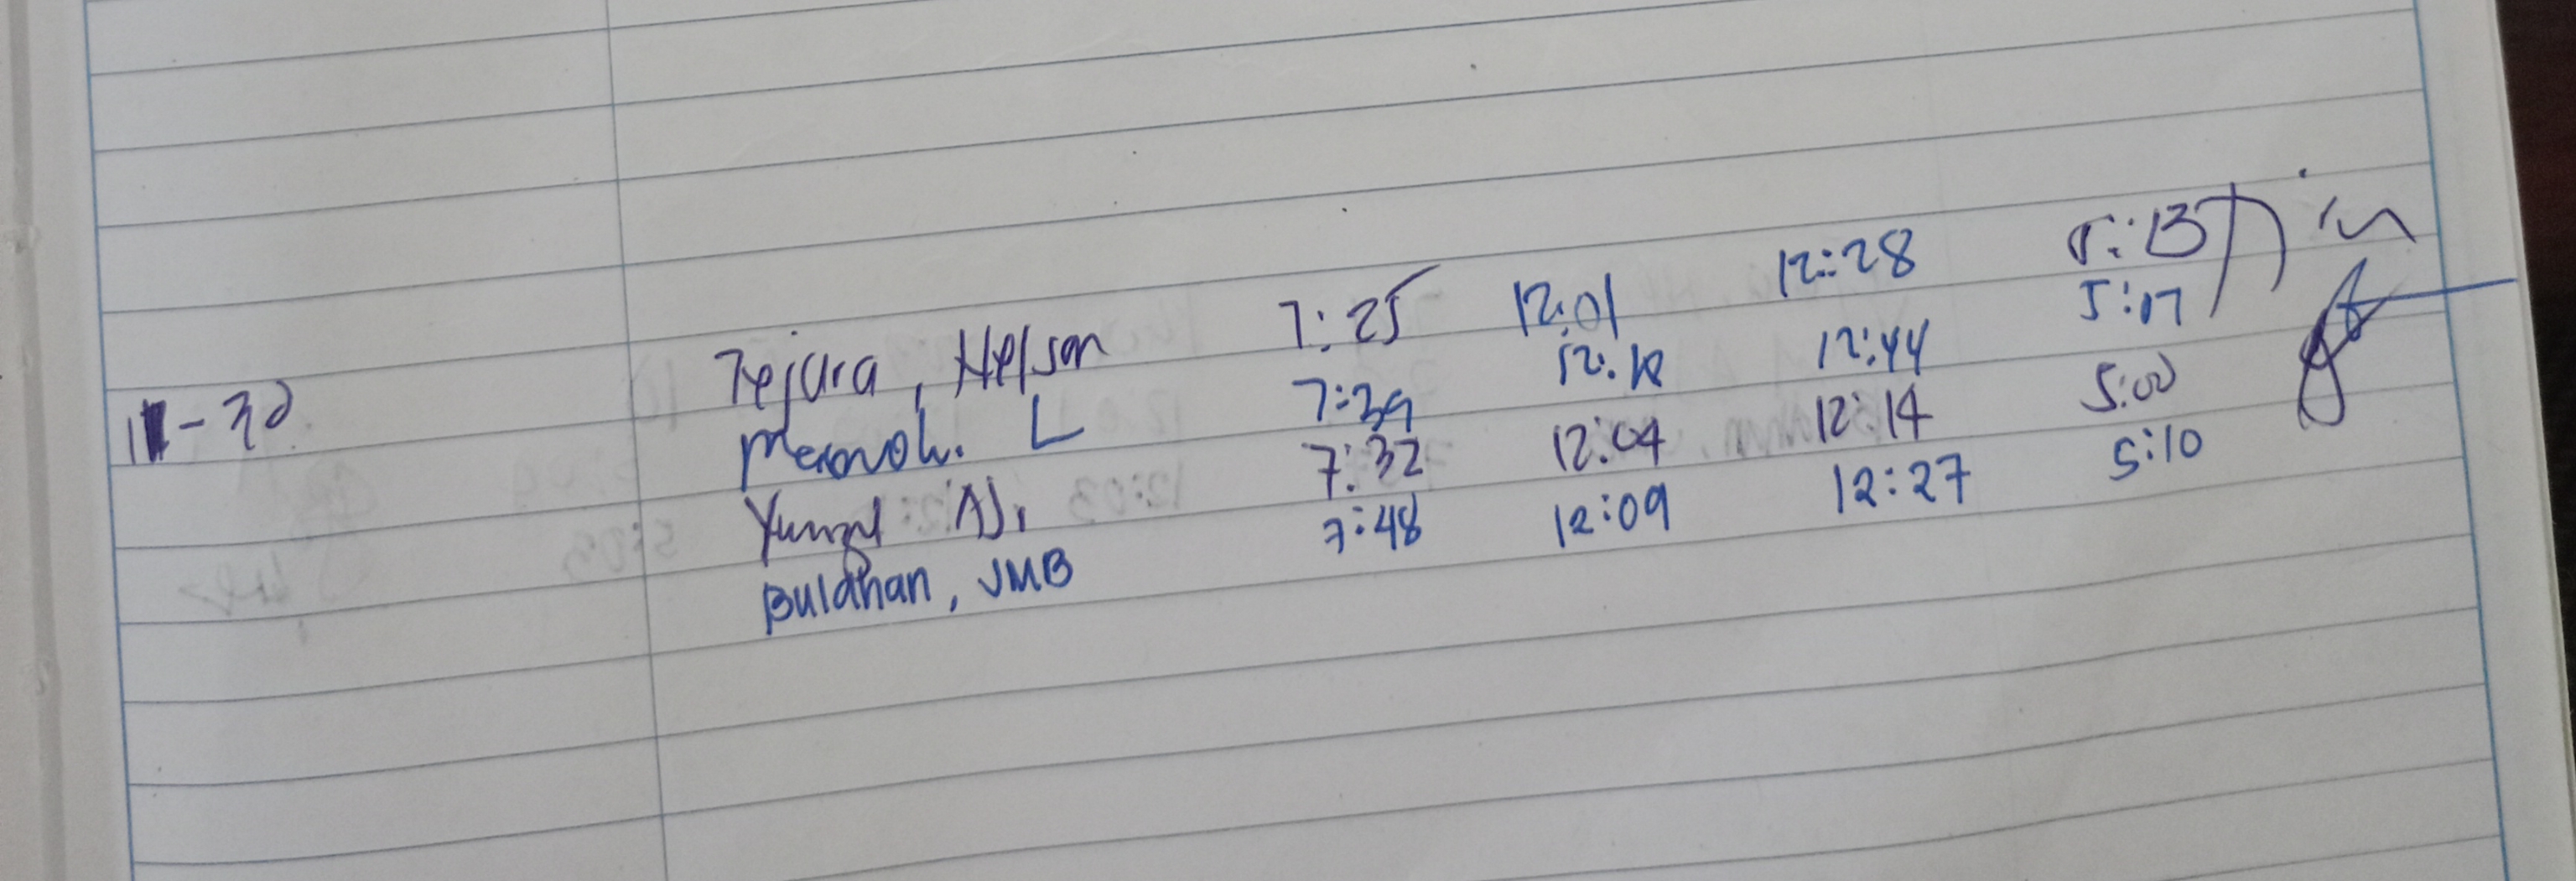 11-30 Tejura, Nelson 7:25 12:01 12:28 5:13
L 7:39 12:18 12:44 5:17
7:32 12:04 12:14 5:00
Buldhan, JMB 7:48 12:09 12:27 5:10